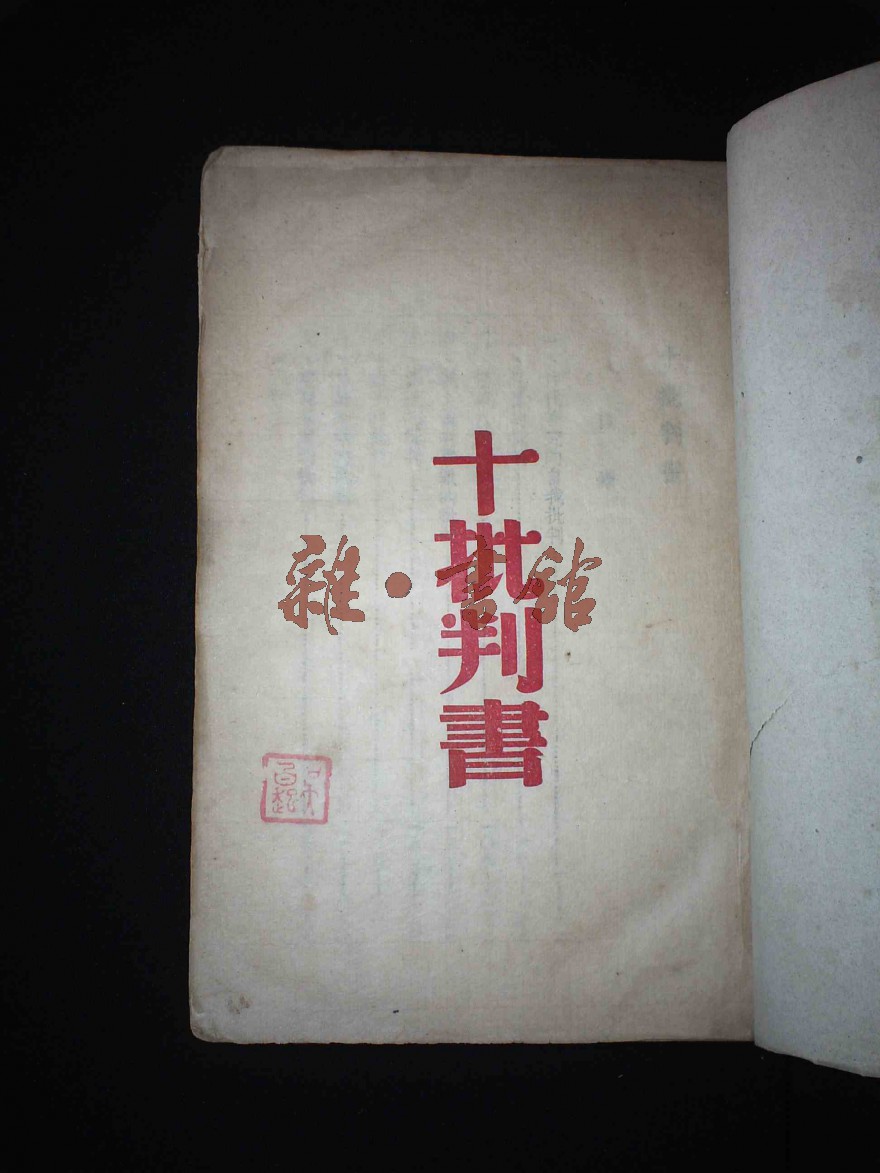 十批判書
雜·書館